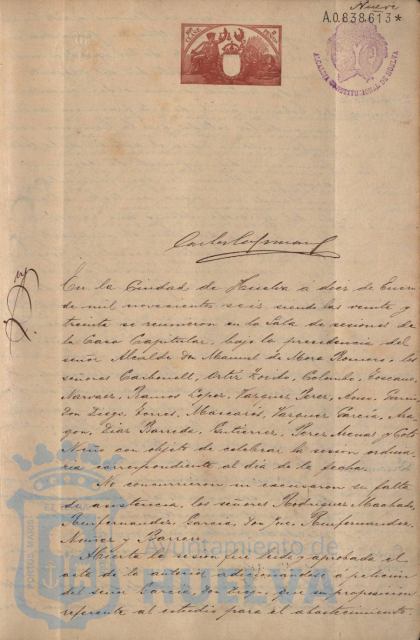 Nueve
A.0.838.613*
ALCALDIA CONSTITUCIONAL DE HUELVA
En la Ciudad de Huelva a diez de Enero
de mil novecientos seis siendo las veinte y
treinta se reunieron en la Sala de sesiones de
la Casa Capitular, bajo la presidencia del
señor Alcalde Don Manuel de Mora Romero, los
señores Carbonell, Ortiz Toido, Colombo, Toscano
Narvaez, Ramos Lopez, Vazquez Perez, García,
Don Diego, Torres, Mascarós, Vazquez García, Ma-
gon, Diaz Barreda, Gutierrez, Perez y Coto
Niño con objeto de celebrar la sesion ordina-
ria correspondiente al dia de la fecha.
No concurrieron ni escusaron su falta
de asistencia, los señores Rodriguez Machado,
Garcia, Don José,
y Barrera
Abierta la sesion fué leida y aprobada el
acta de la anterior adicionandose á peticion
del señor García, Don Diego, que su proposicion
referente al estudio para el abastecimiento
Ayuntamiento de
HUELVA
PORTUS MARIS